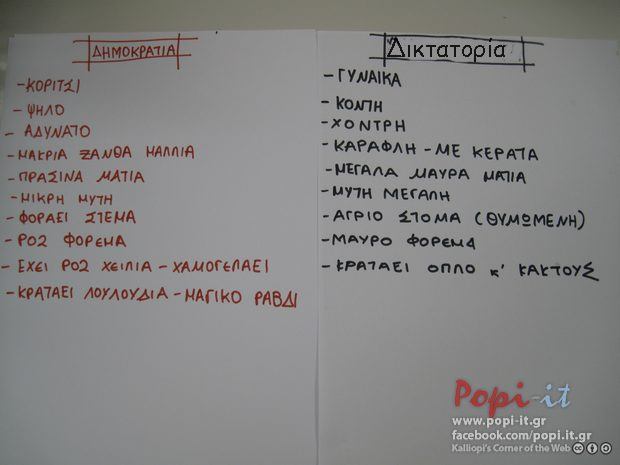 ΔΗΜΟΚΡΑΤΙΑ
-ΚΟΡΙΤΣΙ
-ΨΗΛΟ
-ΑΔΥΝΑΤΟ
-ΜΑΚΡΙΑ ΞΑΝΘΑ ΜΑΛΛΙΑ
-ΠΡΑΣΙΝΑ ΜΑΤΙΑ
-ΜΙΚΡΗ ΜΥΤΗ
-ΦΟΡΑΕΙ ΣΤΕΜΑ
-ΡΟΖ ΦΟΡΕΜΑ
-ΕΧΕΙ ΡΟΖ ΧΕΙΛΙΑ-ΧΑΜΟΓΕΛΑΕΙ
-ΚΡΑΤΑΕΙ ΛΟΥΛΟΥΔΙΑ-ΜΑΓΙΚΟ ΡΑΒΔΙ
Δικτατορία
-ΓΥΝΑΙΚΑ
-ΚΟΝΤΗ
-ΧΟΝΤΡΗ
-ΚΑΡΑΦΛΗ-ΜΕ ΚΕΡΑΤΑ
-ΜΕΓΑΛΑ ΜΑΥΡΑ ΜΑΤΙΑ
-ΜΥΤΗ ΜΕΓΑΛΗ
-ΑΓΡΙΟ ΣΤΟΜΑ (ΘΥΜΩΜΕΝΗ)
-ΜΑΥΡΟ ΦΟΡΕΜΑ
-ΚΡΑΤΑΕΙ ΟΠΛΟ κ' ΚΑΚΤΟΥΣ
Popi-it
www.popi-it.gr
facebook.com/popi.it.gr
Kalliopi's Corner of the Web